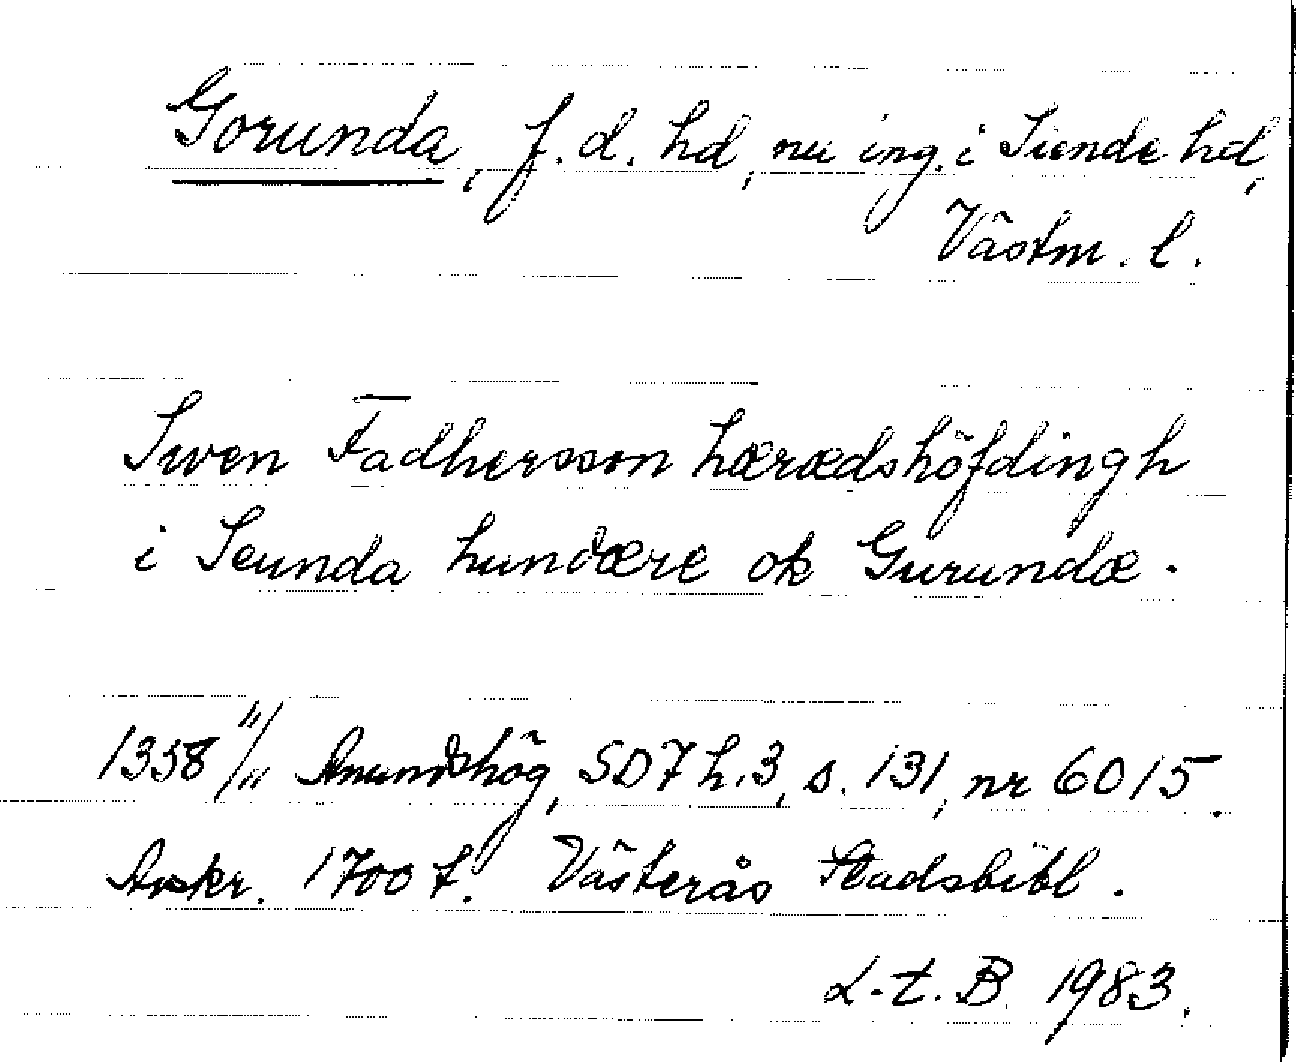 Gorunda, f.d. hd, nu ing. i Siende hd,
Västm. l.
Swen Fadhersson hærædshöfdingh
i Seunda hundære ok Gurundæ.
1358 11/11 Anundshög, SD7 h.3, s. 131, nr 6015.
Avskr. 1700 t. Västerås Stadsbibl.
L-t. B. 1983.